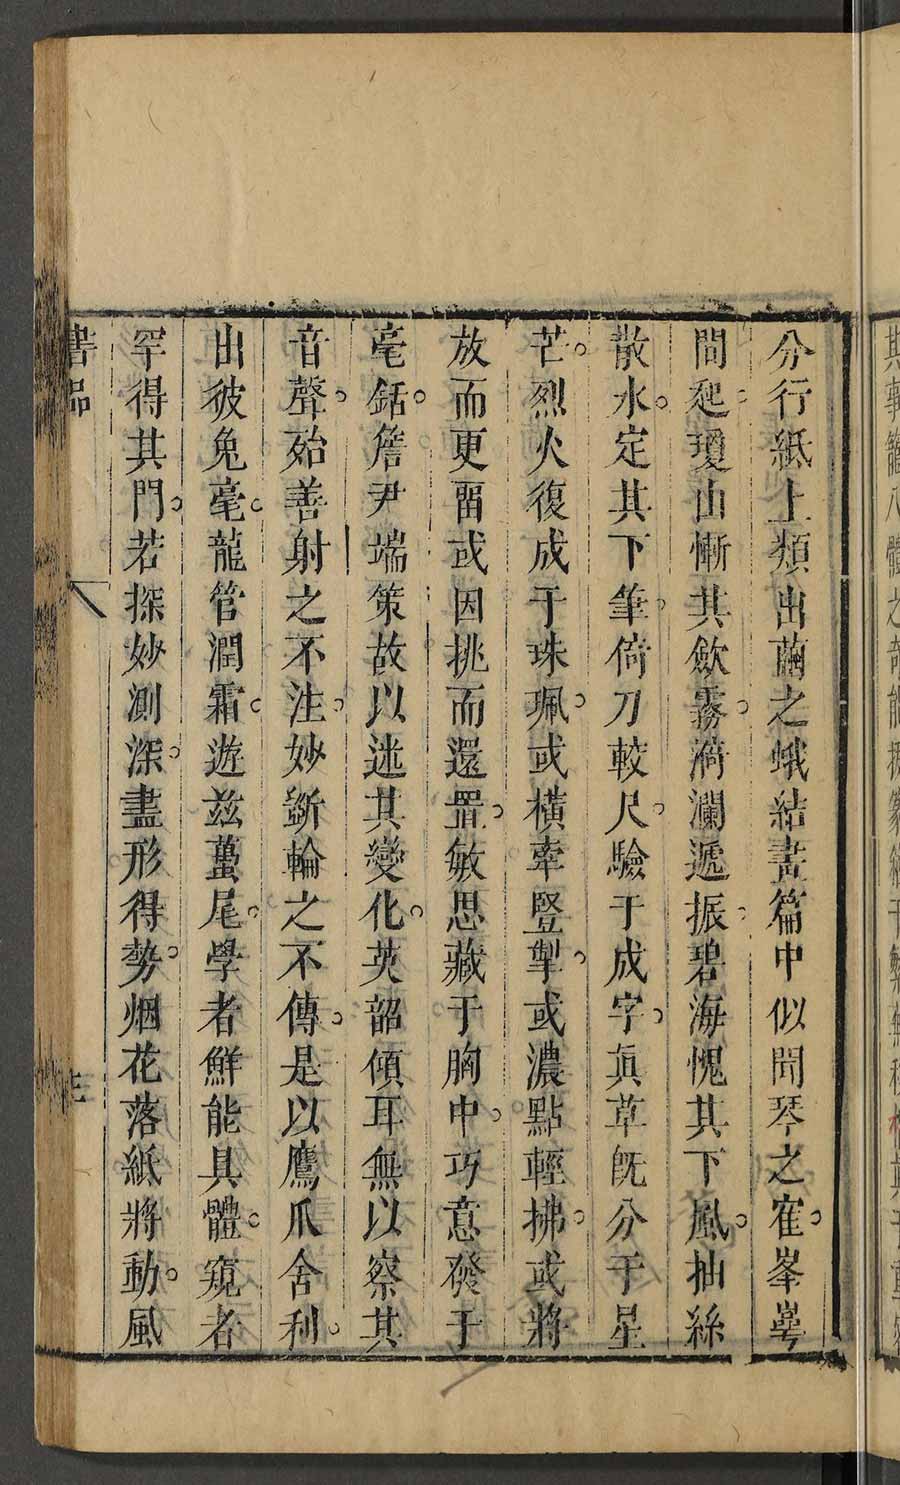 分行紙上類出繭之蛾結畫篇中似聞琴之寉峯崿
間起瓊山慚其斂霧漪瀾遞振碧海愧其下風抽絲
散水定其下筆倚刀較尺驗于成字眞草旣分于星
芒烈火復成于珠珮或橫牽豎掣或濃點輕拂或將
放而更留或因挑而還置敏思藏于胸中巧意發于
毫銛詹尹端策故以迷其變化英韶傾耳無以察其
音聲殆善射之不注妙斲輪之不傳是以鷹爪舍利
出彼兔毫龍管潤霜遊兹蠆尾學者鮮能具體窺者
罕得其門若探妙測深盡形得勢烟花落紙將動風
書品